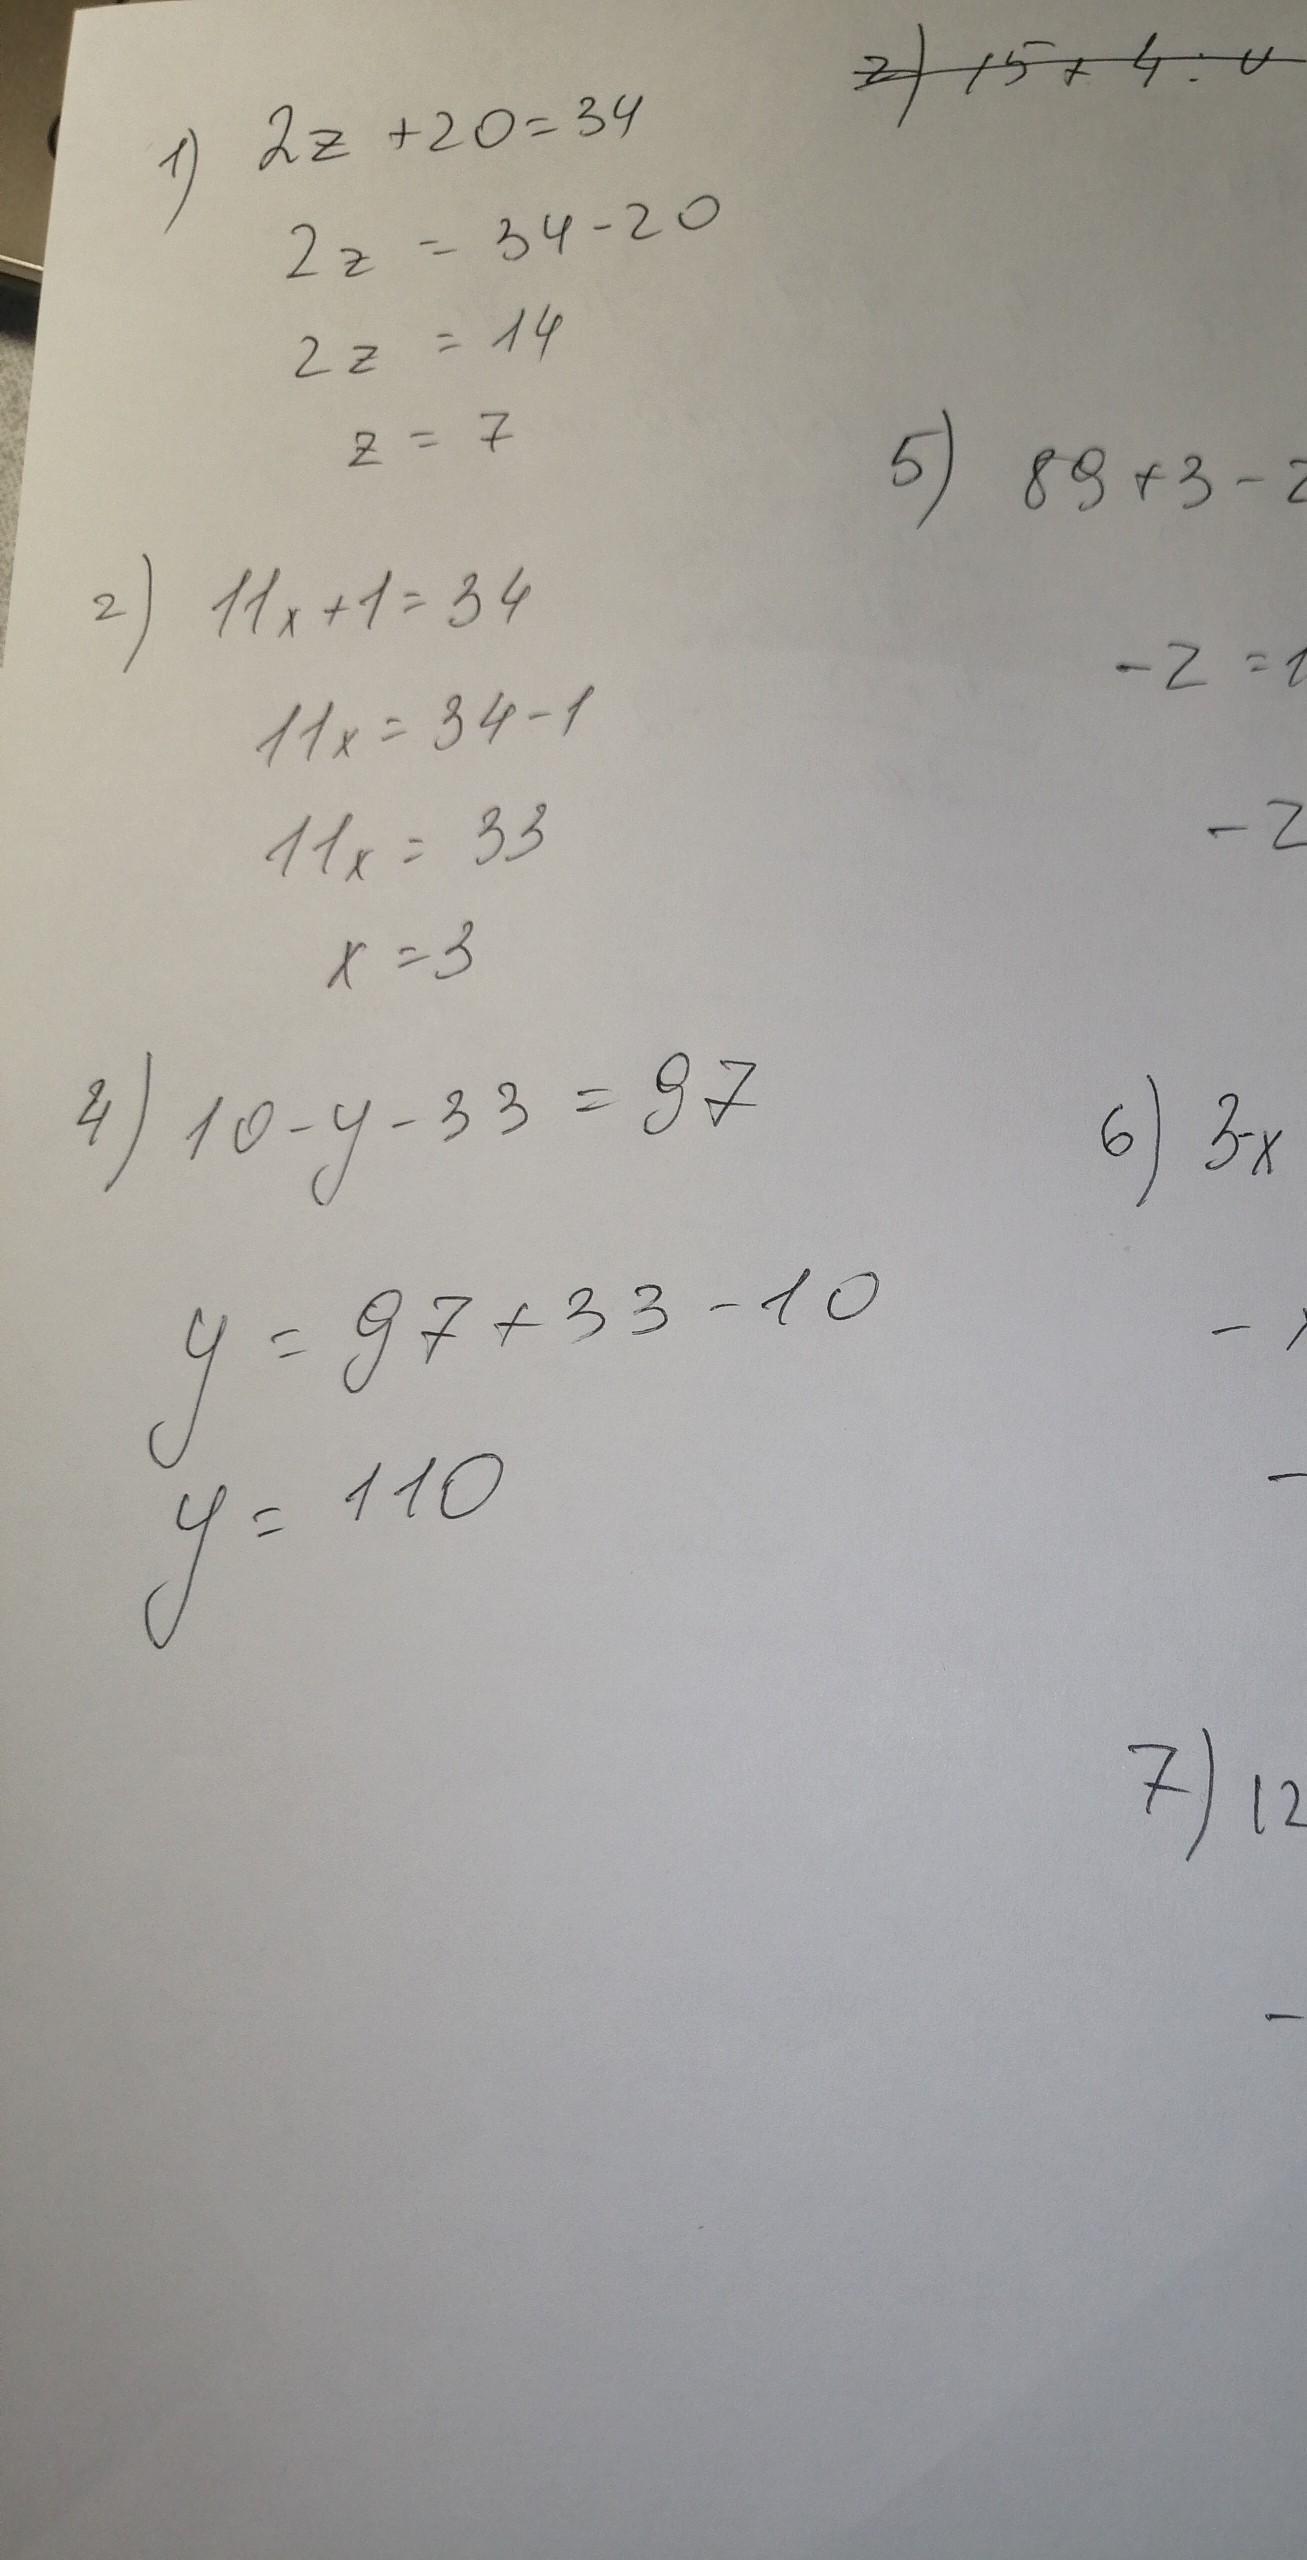 1) 2z + 20 = 34
2z = 34 - 20
2z = 14
z = 7
2) 11x + 1 = 34
11x = 34 - 1
11x = 33
x = 3
4) 10 - y - 33 = 97
y = 97 + 33 - 10
y = 110
2) 15 + 4 :
5) 89 + 3 - z
- z = 1
- z
6) 3-x
-
-
7) 12
-